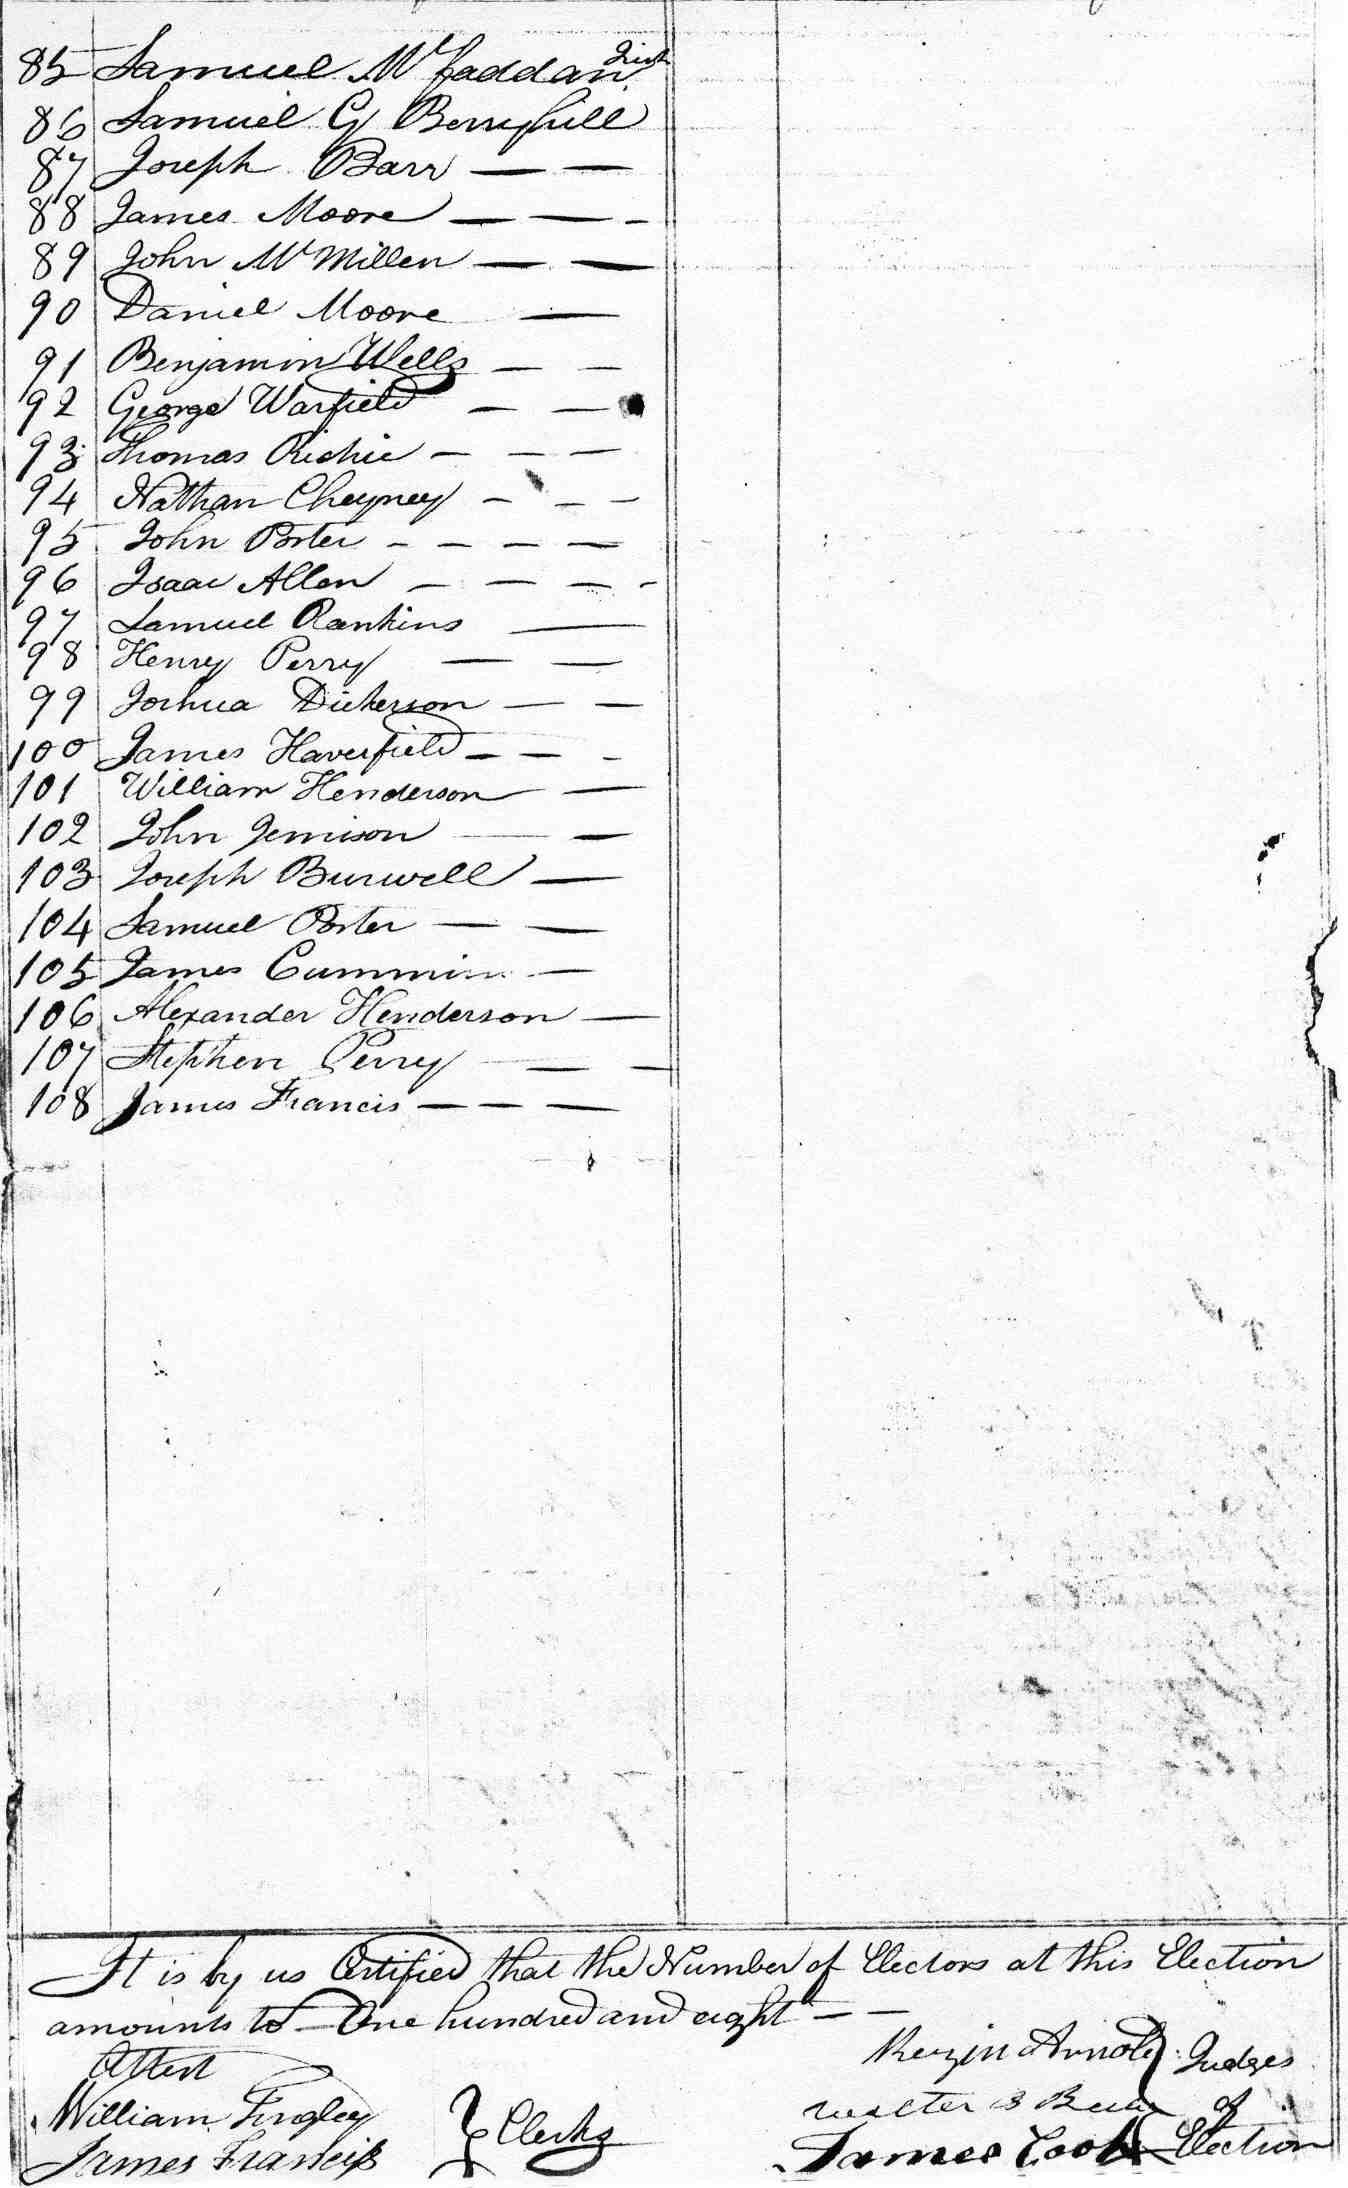 85 Samuel McFaddan
86 Samuel G Berryhill
87 Joseph Barr
88 James Moore
89 John McMillen
90 Daniel Moore
91 Benjamin Wells
92 George Warfield
93 Thomas Richie
94 Nathan Cheyney
95 John Porter
96 Isaac Allen
97 Samuel Rankins
98 Henry Perry
99 Joshua Dickerson
100 James Haverfield
101 William Henderson
102 John Jemison
103 Joseph Burwell
104 Samuel Porter
105 James Cummins
106 Alexander Henderson
107 Stephen Perry
108 James Francis
It is by us Certified that the Number of Electors at this Election
amounts to One hundred and eight
Attest
William Tingley
James Francis
Clerks
Rezin Arnold
Walter B Beebe
James Cook
Judges
of
Election